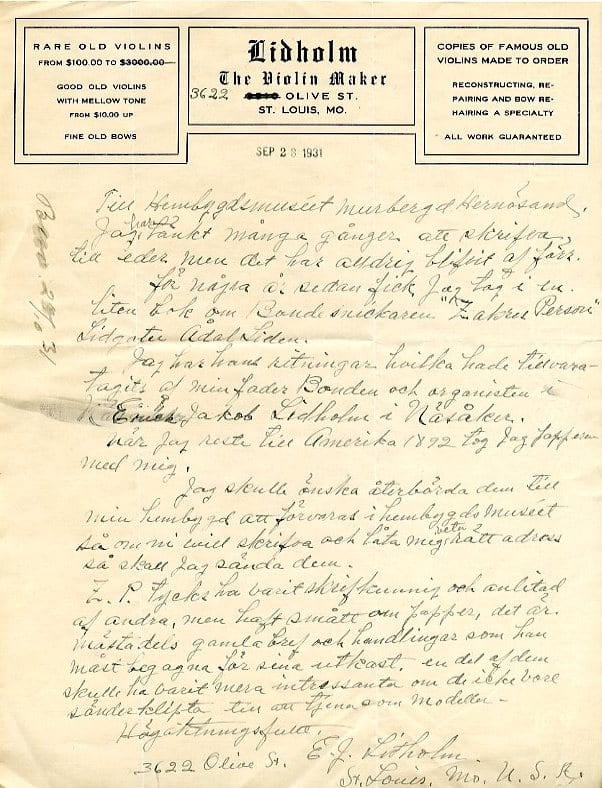 RARE OLD VIOLINS
FROM $100.00 TO $3000.00
GOOD OLD VIOLINS
WITH MELLOW TONE
FROM $10.00 UP
FINE OLD BOWS
Lidholm
The Violin Maker
3622 OLIVE ST.
ST. LOUIS, MO.
COPIES OF FAMOUS OLD
VIOLINS MADE TO ORDER
RECONSTRUCTING, RE-
PAIRING AND BOW RE-
HAIRING A SPECIALTY
ALL WORK GUARANTEED
SEP 28 1931
Till Hembygdsmuséet Murberget Hernösand.
Jag har tänkt många gånger att skrifva
till eder men det har alldrig blifvit af förr.
för några år sedan fick jag tag i en
liten bok om Bondesnickaren "Zakris Person"
Lidgatu Ådal Liden.
Jag har hans ritningar hvilka hade tillvara-
tagits af min fader Bonden och organisten i
Jakob Lidholm i Näsåker.
När Jag reste till Amerika 1892 tog Jag papperen
med mig.
Jag skulle önska återbörda dem till
min hembygd att förvaras i hembygdsmuséet
så om ni vill skrifva och låta mig veta rätt adress
så skall Jag sända dem.
Z. P. tycks ha varit skrifkunnig och anlitad
af andra, men haft smått om papper, det är
mästadels gamla bref och handlingar som han
måst begagna för sina utkast, en del af dem
skulle ha varit mera intressanta om de icke vore
sönderklipta till att tjena som modeller -
Högaktningsfullt.
E. J. Lidholm
3622 Olive St.
St. Louis, Mo. U. S. A.